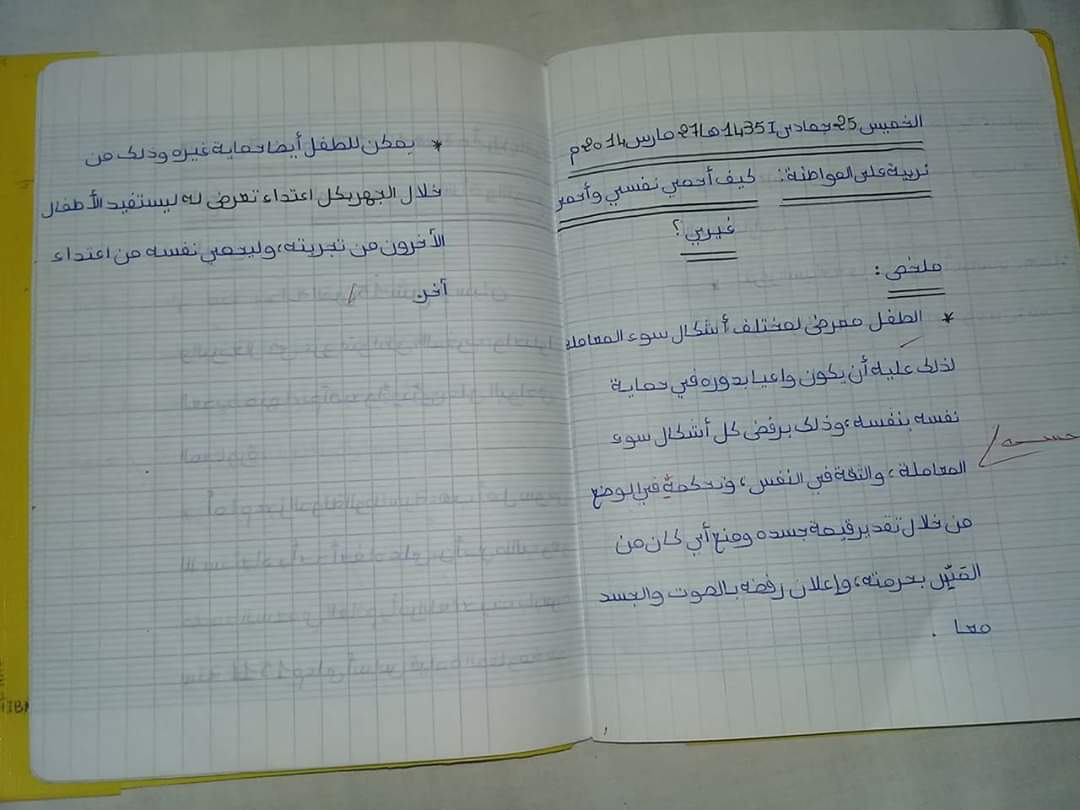 الخميس 25 جمادى I 1435ها 27 مارس 2014م
تربية على المواطنة: كيف أحمي نفسي وأحمي
غيري؟
ملخص:
* الطفل معرض لمختلف أشكال سوء المعاملة
لذلك عليه أن يكون واعيا بدوره في حماية
نفسه بنفسه، وذلك برفض كل أشكال سوء
المعاملة، والثقة في النفس، وتحكمه في الوضع
من خلال تقدير قيمة جسده ومنع أي كان من
المس بحرمته، وإعلان رفضه بالصوت والجسد
معا.
* يمكن للطفل أيضا حماية غيره وذلك من
خلال الجهر بكل اعتداء تعرض له ليستفيد الأطفال
الأخرون من تجربته، وليحمي نفسه من اعتداء
آخر